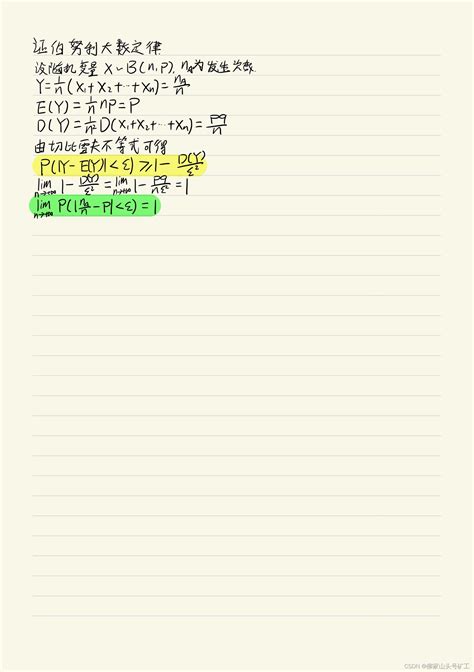 证伯努利大数定律
设随机变量 X~B(n,p), nₐ为发生次数.
Y=1/n(X₁+X₂+…+Xₙ)=nₐ/n
E(Y)=1/n np=P
D(Y)=1/n² D(X₁+X₂+…+Xₙ)=pq/n
由切比雪夫不等式可得
P(|Y-E(Y)|<ε)≥1-D(Y)/ε²
lim n→+∞ 1-D(Y)/ε²=lim n→+∞ 1-pq/nε²=1
lim n→+∞ P(|nₐ/n-P|<ε)=1
CSDN @柳家山头号矿工